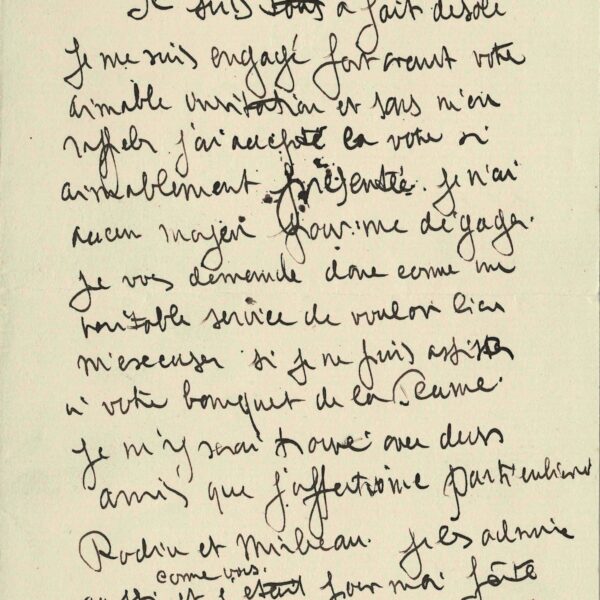 Je suis tous a fait desolé
Je me suis engagé fort avant votre
aimable invitation et sans m'en
rappeler j'ai accepté la votre si
aimablement présentée. Je n'ai
aucun moyen pour me dégager.
Je vous demande donc comme un
veritable service de vouloir bien
m'excuser si je ne puis assister
a votre banquet de la Plume.
Je m'y serai trouvé avec deux
amis que j'affectionne particulierement
Rodin et Mirbeau. Je les admire
comme vous.
aussi et c'etait pour moi fête